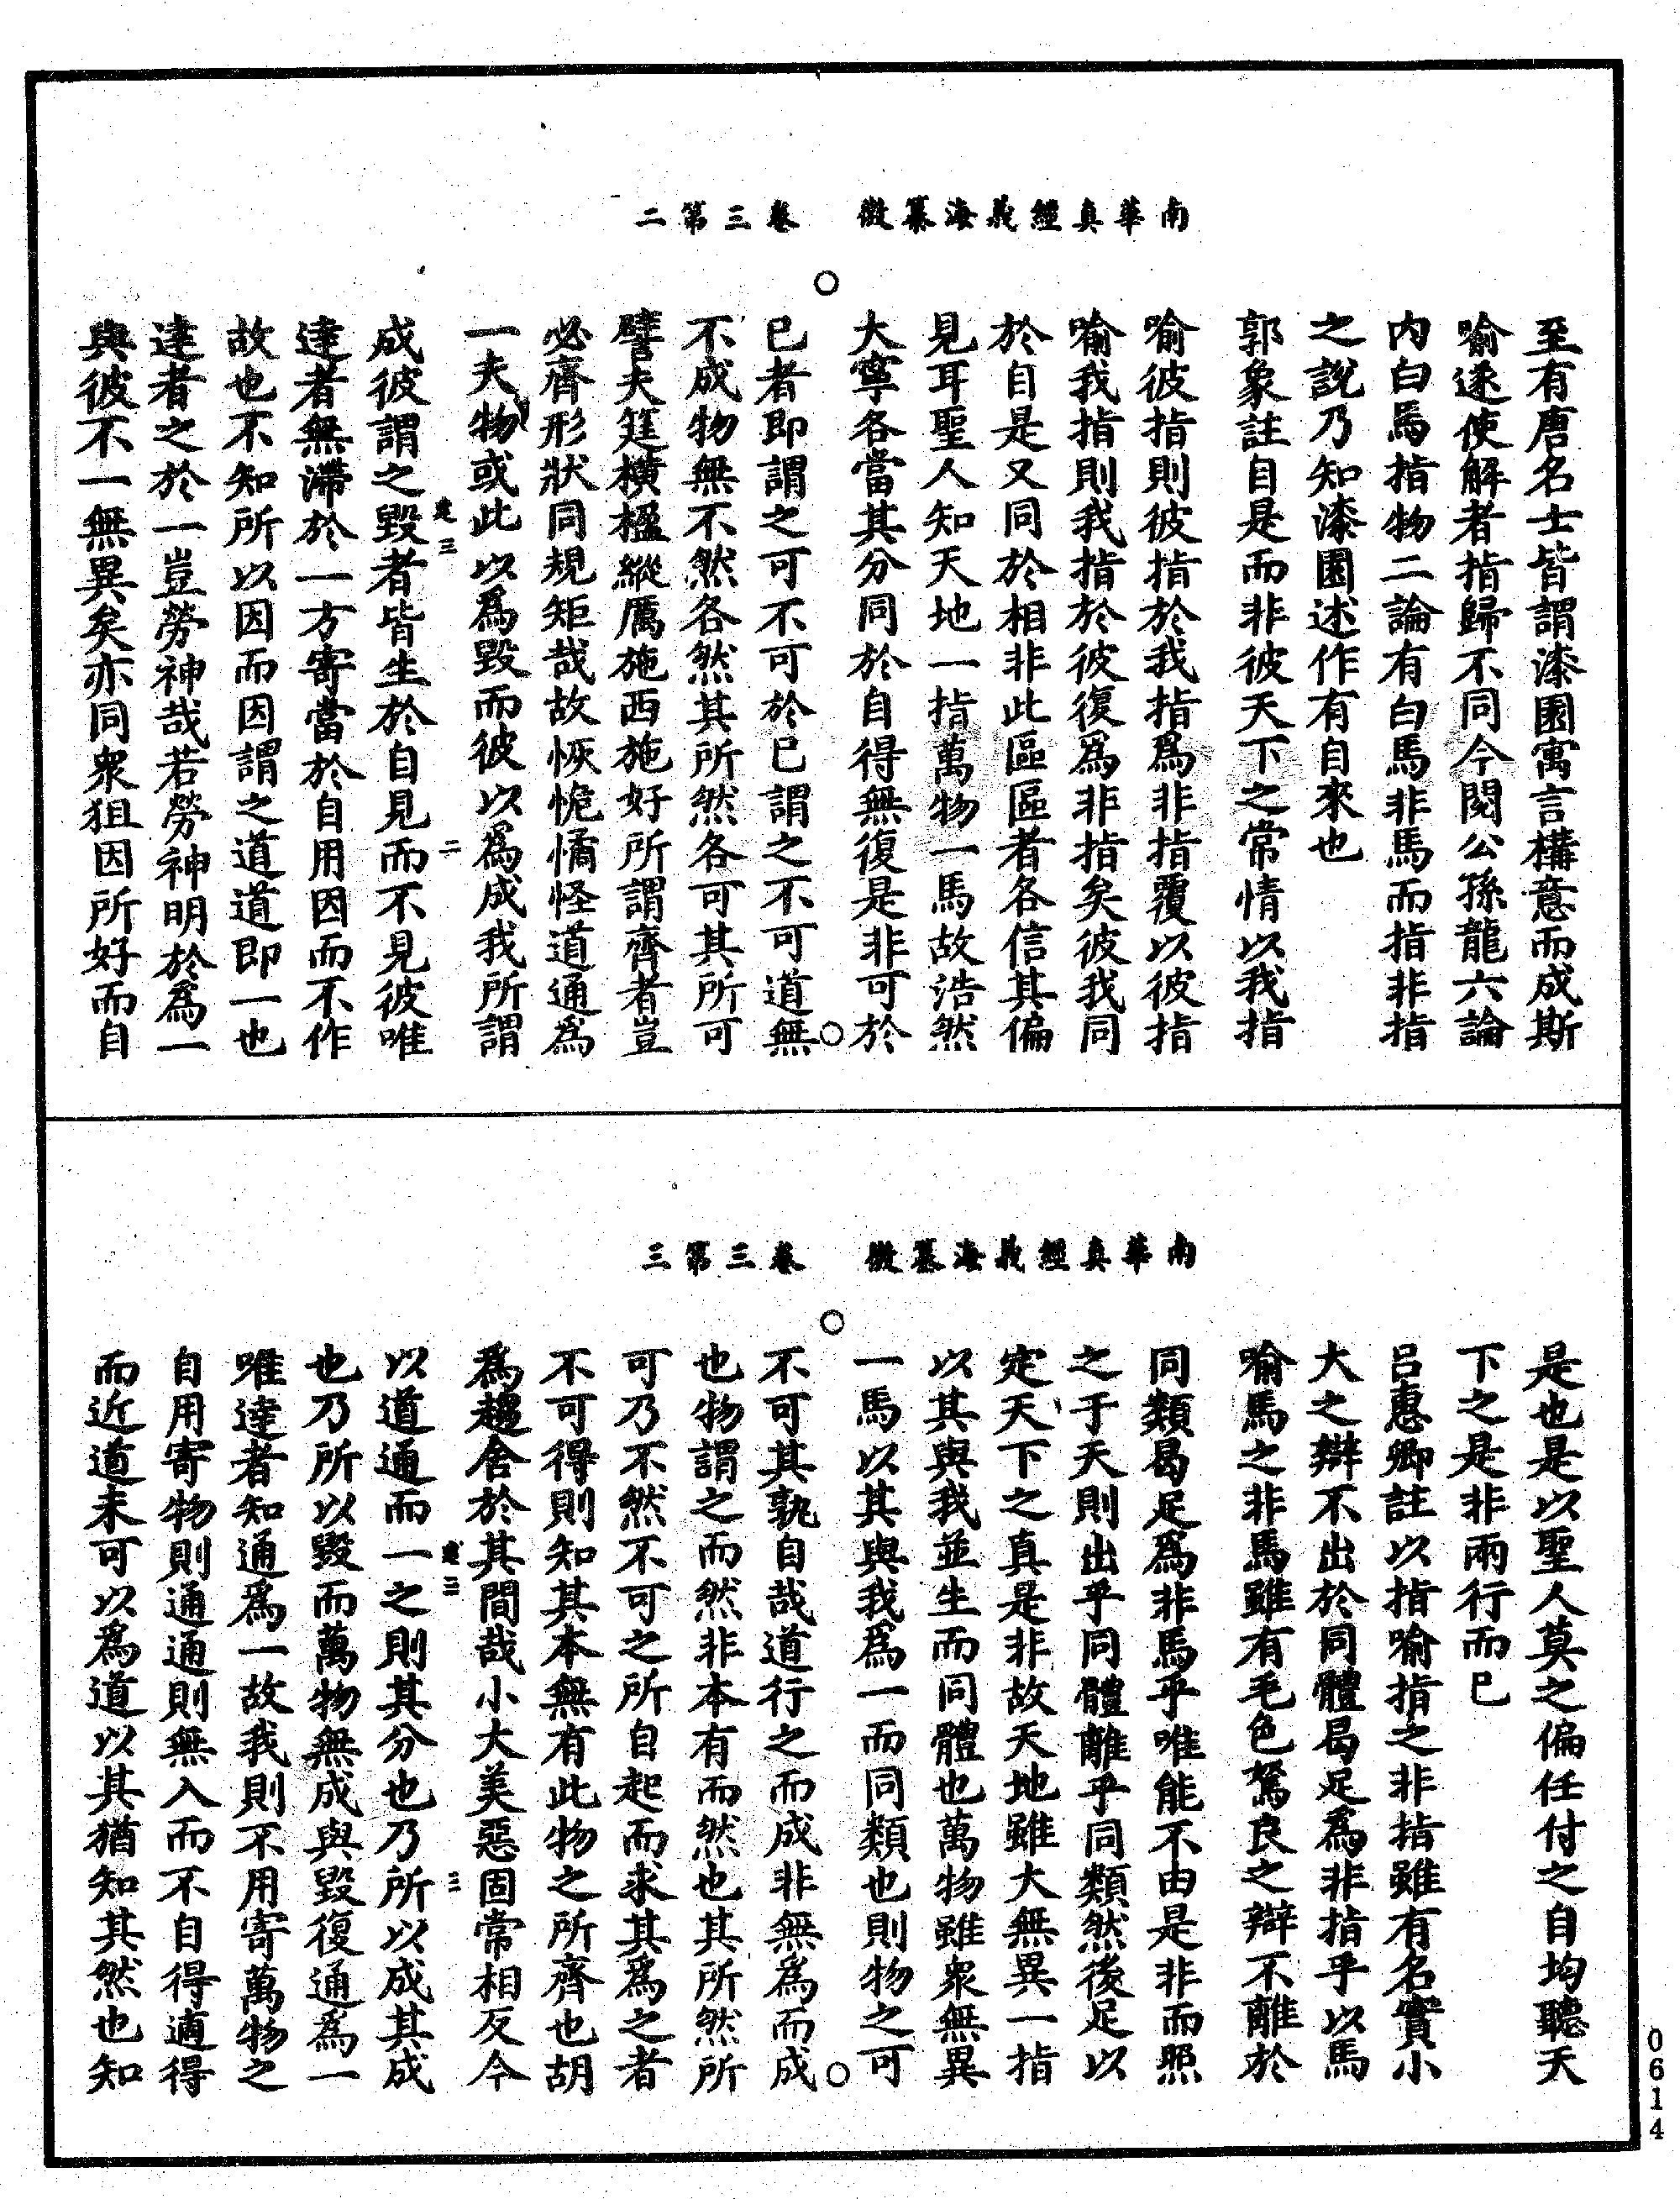 南華真經義海纂微　卷三第二
至有唐名士皆謂漆園寓言構意而成斯
喻遂使解者指歸不同今閱公孫龍六論
内白馬指物二論有白馬非馬而指非指
之說乃知漆園述作有自來也
郭象註自是而非彼天下之常情以我指
喻彼指則彼指於我指爲非指覆以彼指
喻我指則我指於彼復爲非指矣彼我同
於自是又同於相非此區區者各信其偏
見耳聖人知天地一指萬物一馬故浩然
大寧各當其分同於自得無復是非可於
已者即謂之可不可於已謂之不可道無
不成物無不然各然其所然各可其所可
譬夫筳橫楹縱厲施西施好所謂齊者豈
必齊形狀同規矩哉故恢恑憰怪道通爲
一夫物或此以爲毀而彼以爲成我所謂
成彼謂之毀者皆生於自見而不見彼唯
達者無滯於一方寄當於自用因而不作
故也不知所以因而因謂之道道即一也
達者之於一豈勞神哉若勞神明於爲一
與彼不一無異矣亦同衆狙因所好而自
建三
二
南華真經義海纂微　卷三第三
是也是以聖人莫之偏任付之自均聽天
下之是非兩行而已
呂惠卿註以指喻指之非指雖有名實小
大之辯不出於同體曷足爲非指乎以馬
喻馬之非馬雖有毛色駑良之辯不離於
同類曷足爲非馬乎唯能不由是非而照
之于天則出乎同體離乎同類然後足以
定天下之真是非故天地雖大無異一指
以其與我並生而同體也萬物雖衆無異
一馬以其與我爲一而同類也則物之可
不可其孰自哉道行之而成非無爲而成
也物謂之而然非本有而然也其所然所
可乃不然不可之所自起而求其爲之者
不可得則知其本無有此物之所齊也胡
爲趨舍於其間哉小大美惡固常相反今
以道通而一之則其分也乃所以成其成
也乃所以毀而萬物無成與毀復通爲一
唯達者知通爲一故我則不用寄萬物之
自用寄物則通通則無入而不自得適得
而近道未可以爲道以其猶知其然也知
建三
三
0614